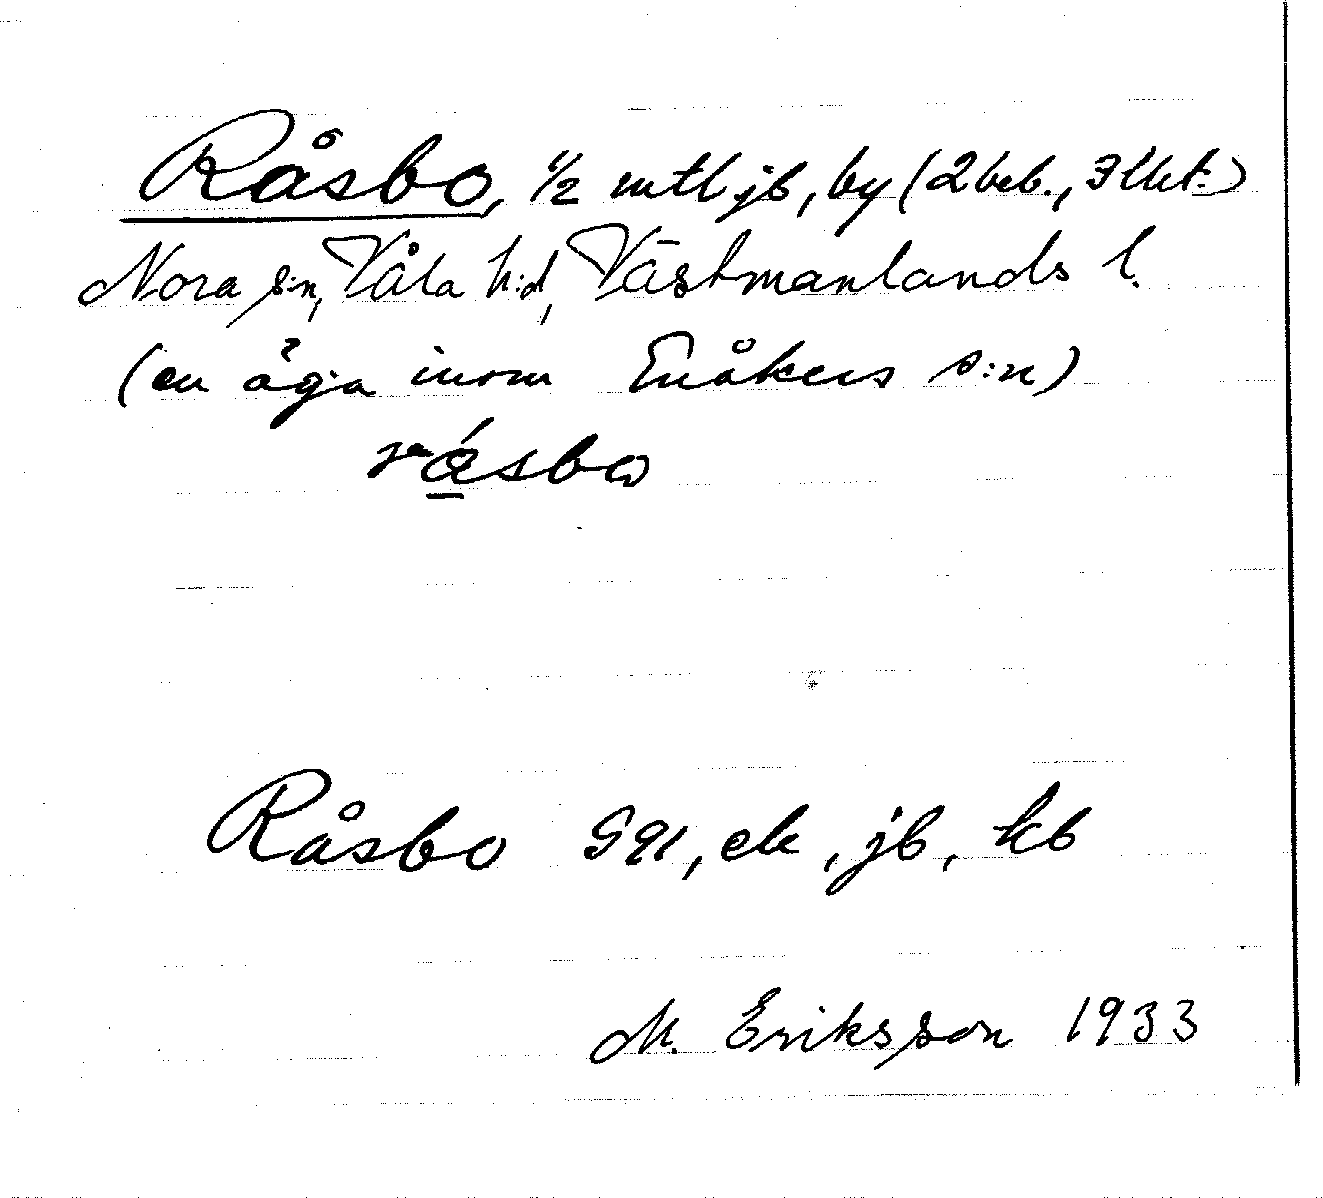 Råsbo, 1/2 mtl jb, by (2 beb., 3 lht.)
Nora s:n, Våla h:d, Västmanlands l.
(en äga inom Enåkers s:n)
råsbω
Råsbo G 91, ek, jb, kb
M. Eriksson 1933